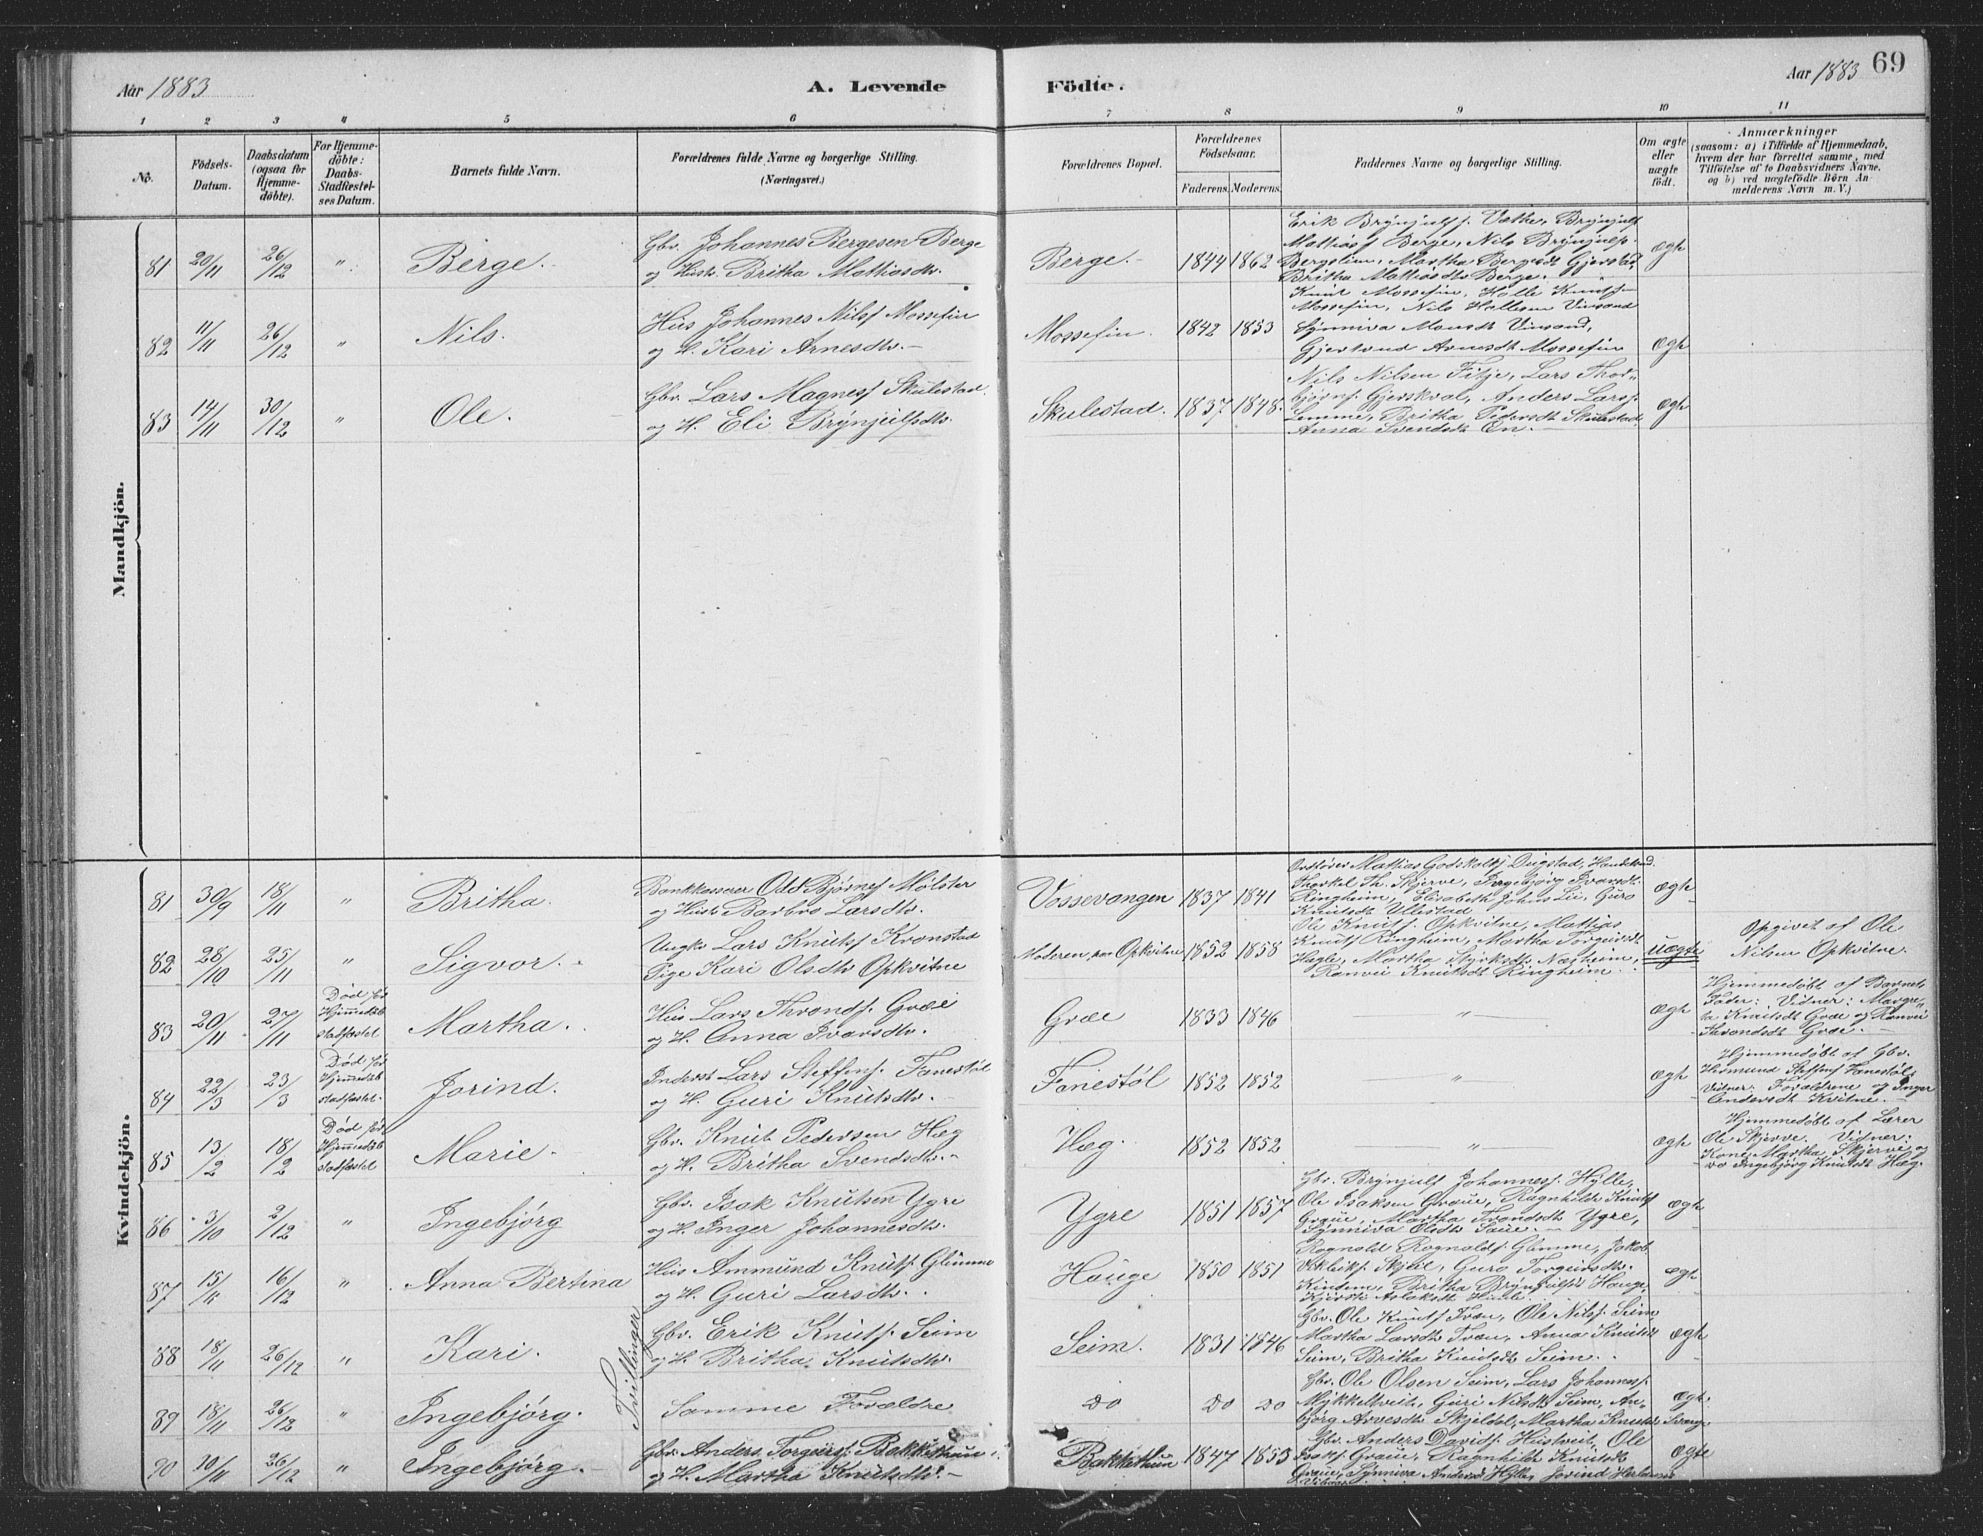 Aar 1883
A. Levende
Födte.
Aar 1883
69
1 2 3 4 5 6 7 8 9 10 11
No.
Födsels-
Datum.
Daabsdatum
(ogsaa for
Hjemme-
döbte).
For Hjemme-
döbte:
Daabs-
Stadfæstel-
ses Datum.
Barnets fulde Navn.
Forældrenes fulde Navne og borgerlige Stilling.
(Næringsvei.)
Forældrenes Bopæl.
Forældrenes
Födselsaar.
Faderens. Moderens.
Faddernes Navne og borgerlige Stilling.
Om ægte
eller
uægte
födt.
Anmærkninger
(saasom: a) i Tilfælde af Hjemmedaab,
hvem der har forrettet samme, med
Tilföielse af to Daabsvidners Navne,
og b) ved uægtefödte Börn An-
melderens Navn m. V.)
Mandkjön.
81 20/11 26/12 " Berge.
Gbr. Johannes Bergesen Berge
og Hustr. Britha Mathiasdtr.
Berge. 1844 1862
Erik Brynjulfs. Væthe, Brynjulf
Mathias Berge, Nils Brynjulfs.
Bergslien, Martha Bergesdt Gjerstad,
Britha Mathiasdtr Berge.
Ægte
82 11/11 26/12 " Nils.
Hus Johannes Nils Mossefin
og H. Kari Arnesdtr.
Mossefin. 1842 1853
Knut Mossefin, Holle Knuts
Mossefin, Nils Hallesen Vinsand
Synniva Monsdt Vinsand,
Gjertrud Arnesdt Mossefin
Ægte
83 14/11 30/12 " Ole.
Gbr. Lars Magness Skulestad.
og H. Eli Brynjulfsdtr.
Skulestad. 1837 1848.
Nils Nilsen Fitje, Lars Thor-
bjørns. Gjerskval, Anders Lars.
Lemme, Britha Pedersdt Skulestad
Anna Svendsdt En.
Ægte
Kvindekjön.
81 30/9 18/11 " Britha.
Bankkasserer Odd Bjørnes Mølster
og Hustr Barbro Larsdtr.
Vossevangen 1837 1841
Ordfører Mathias Godskalks Dugstad, Handelsmd.
Thorkel Th. Skjerve, Ingebjørg Ivarsdt.
Ringheim, Elisabeth Johns Lii, Guro
Knutsdt Ullestad
Ægte
82 28/10 25/11 " Sigvor.
Ungk. Lars Knuts Kronstad
Pige Kari Olsdtr Opkvitne
Moderen, paa Opkvitne 1852 1858
Ole Knuts. Opkvitne, Mathias
Knuts Ringheim, Martha Torgeirsdt.
Hagle, Martha Styrksdt. Næsheim,
Ranvei Knutsdt Ringheim.
Uægte
Opgivet af Ole
Nilsen Opkvitne.
83 20/11 27/11
Död før
Hjemmedaab
stadfæstet
Martha.
Hus Lars Thronds. Græe
og H. Anna Ivarsdtr.
Græe 1833 1846 " Ægte
Hjemmedøbt af Barnets
Fader: Vidner: Margre-
ta Knutsdt Græe og Ranvei
Throndsdt Græe.
84 22/3 23/3
Död før
Hjemmedab
stadfæstet.
Jorind.
Inderst Lars Steffens. Fanestøl
og H. Guri Knutsdtr.
Fanestøl 1852 1852 " Ægte
Hjemmedøbt af Gbr.
Steffens Fanestøl,
Vidner: Forældrene og Inger
Andersdt Kvitne.
85 13/2 18/2
Död før
Hjemmedab
stadfæstet
Marie.
Gbr. Knut Pedersen Hæg
og H. Britha Svendsdtr.
Hæg. 1852 1852 " Ægte
Hjemmedøbt af Lærer
Ole Skjerve. Vidner:
Kone Martha Skjerve og
do Ingebjørg Knutsdt Hæg.
86 3/10 2/12 " Ingebjørg
Gbr. Isak Knutsen Ygre
og H. Inger Johannesdtr.
Ygre 1851 1857
Gbr. Brynjulf Johanness. Hylle,
Ole Isaksen Graue, Ragnhilde Knuts
Graue, Martha Trondsdt Ygre,
Synniva Olsdtr Saue.
Ægte
87 15/11 16/12 " Anna Bertina
Hus Ammund Knuts. Glimme
og H. Guri Larsdtr.
Hauge 1850 1851
Rognald Rognalds. Glimme, Jakob
Skjeli, Guro Torgeirsdtr.
Kindem, Britha Brynjulfsdt Hauge,
Kjersti Aslaksdt
Ægte
Tvillinger
88 18/11 26/12 " Kari.
Gbr. Erik Knuts. Seim
og H. Britha Knutsdtr.
Seim. 1831 1846
Gbr. Ole Knuts Tvæn, Ole Nils. Seim
Martha Larsdtr Tvæn, Anna Knutsdt
Seim, Britha Knutsdt Seim.
Ægte
89 18/11 26/12 " Ingebjørg.
Samme Forældre
do do do
Gbr. Ole Olsen Seim, Lars Johanness.
Mykkeltveit, Guri Nilsdt Seim, An-
bjørg Arnesdt Skjeldal, Martha Knutsdt
Ægte.
90 10/11 26/12 " Ingebjørg.
Gbr. Anders Torgeirs. Bakkethun
og H. Martha Knutsdtr.
Bakkethun 1847 1853
Gbr. Anders Davids. Hustveit, Ole
Isaks. Graue, Ragnhilde Knutsdt
Graue, Synniva Andersdt Hylle, Jorind
Ægte